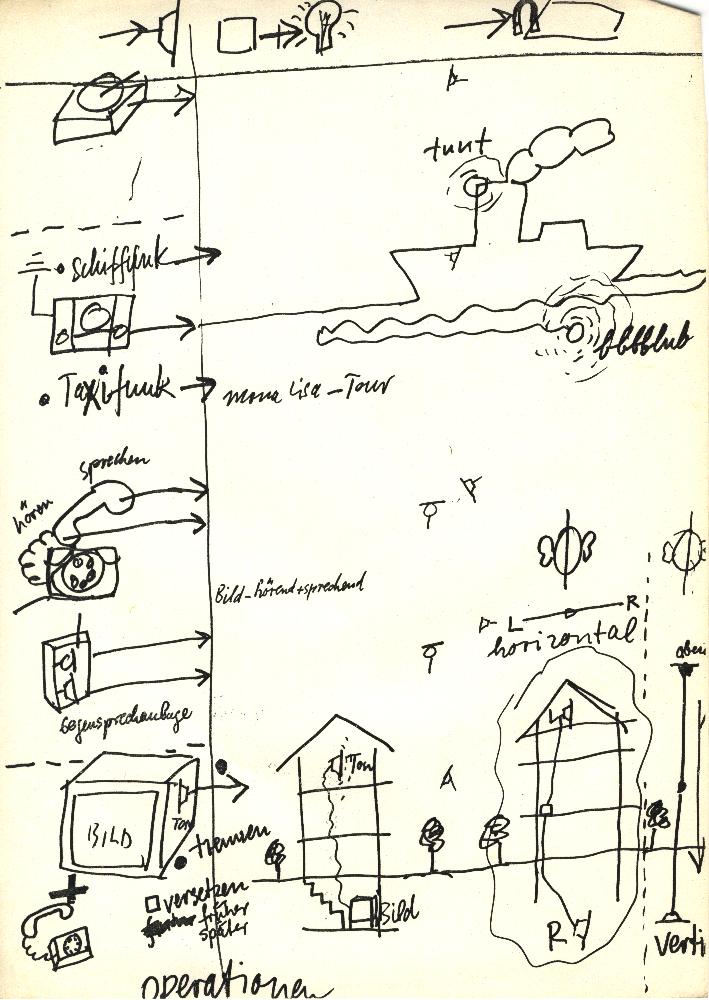 tuut
• Schiffunk
bbbblub
• Taxifunk
Mona Lisa - Tour
sprechen
hören
Bild - hörend + sprechend
L R
horizontal
oben
Gegensprechanlage
Ton
Ton
BILD
trennen
versetzen
früher
später
Bild
R
verti
operationen